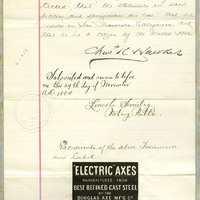 that the statements in said
are true. that he
resides in San Francisco California and
that he is a citizen of the United States
Chas. R. Hawkes
Subscribed and sworn to before
me this 29th day of November
A.D. 1884
Lincoln Sonntag
Notary Public.
Facsimile of the above Trademark
and Label.
ELECTRIC AXES
MANUFACTURED FROM
BEST REFINED CAST STEEL
BY THE
DOUGLAS AXE M'F'G CO.